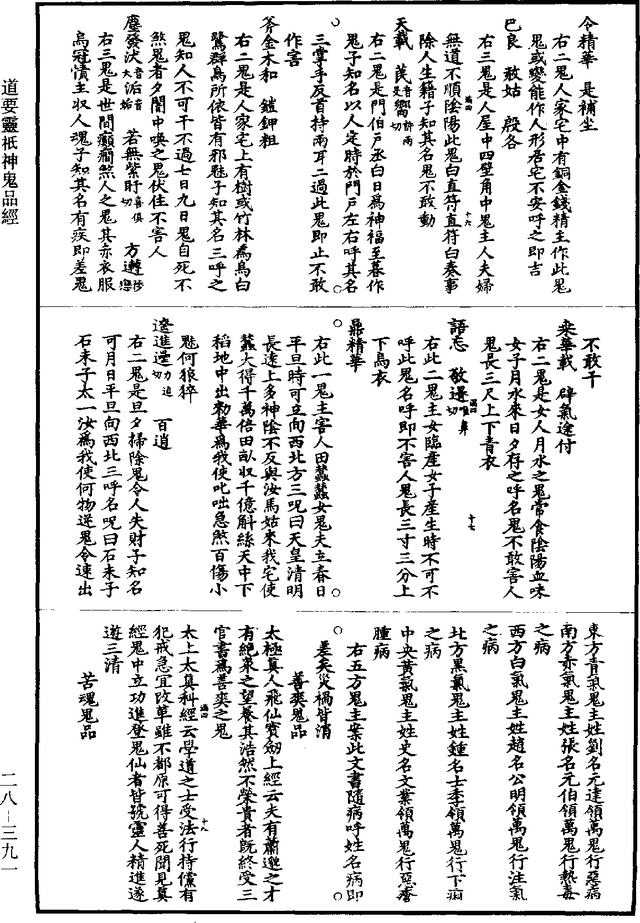 令精華　是補生
右二鬼人家宅中有銅金錢精主作此鬼
鬼或變能作人形居宅不安呼之即吉
巴良　敢姑　殷各
右三鬼是人屋中四壁角中鬼主人夫婦
無道不順陰陽此鬼白直符直符白奏事
除人生籍子知其名鬼不敢動
天載　䒶
右二鬼是門伯戶丞白日為神福至暮作
鬼子知名以人定時於門戶左右呼其名
三掌手反首持兩耳二過此鬼即止不敢
作害
斧金木和　鎚鉀粗
右二鬼是人家宅上有樹或竹林為鳥白
鷺群鳥所依皆有邪魅子知其名三呼之
鬼知人不可干不過七日九日鬼自死不
煞鬼者夕闇中喚之鬼伏住不害人
塵發洑　若無紫盱　方遭
右三鬼是世間癲癎煞人之鬼其赤衣服
烏冠幘主収人魂子知其名有疾即差鬼
不敢干
來華載　辟氣途付
右二鬼是女人月水之鬼常食陰陽血味
女子月水來日夕存之呼名鬼不敢害人
鬼長三尺上下青衣
語忘　敬遺
右此二鬼主女臨產女子產生時不可不
呼此鬼名呼即不害人鬼長三寸三分上
下烏衣
鼎精華
右此一鬼主害人田蠶蠶女鬼夫立春日
平旦時可立向西北方三呪曰天皇清明
長達上多神陰不反與汝馬姑來我宅使
蠶大得千萬倍田畝収千億斛絲天中下
稻地中出勑華為我使叱咄急煞百傷小
魅何狼猝
遼進邊　百逍
右二鬼是旦夕掃除鬼令人失財子知名
可月日平旦向西北三呼名呪曰石未子
石未子太一汝為我使何物逆鬼令速出
東方青氣鬼主姓劉名元達領萬鬼行惡病
南方赤氣鬼主姓張名元伯領萬鬼行熱毒
之病
西方白氣鬼主姓趙名公明領萬鬼行注氣
之病
北方黑氣鬼主姓鍾名士季領萬鬼行下痢
之病
中央黃氣鬼主姓史名文業領萬鬼行惡瘡
腫病
右五方鬼主案此文書隨病呼姓名病即
差矣災禍皆消
善爽鬼品
太極真人飛仙寶劒上經云夫有蕭邈之才
有絕衆之望養其浩然不榮貴者既終受三
官書為善爽之鬼
太上太真科經云學道之士受法行持儻有
犯戒急宜改革雖不都原可得善死聞見真
經鬼中立功進登鬼仙者皆號靈人精進遂
遊三清
苦魂鬼品
道要靈祇神鬼品經
二八－三九一